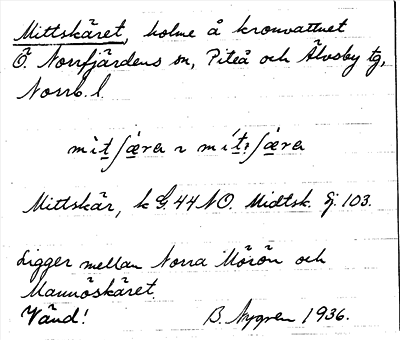 Mittskäret, holme å kronvattnet
Ö. Norrfjärdens sn, Piteå och Älvsby tg,
Norrb. l.
Mittskär, k G. 44 NO. Midtsk. Sj. 103.
Ligger mellan Norra Mörön och
Mannöskäret.
Vänd! B. Nygren 1936.